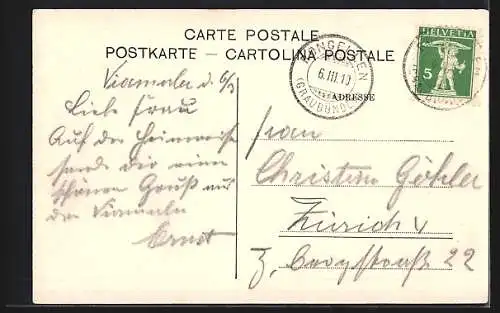 CARTE POSTALE
POSTKARTE – CARTOLINA POSTALE
HELVETIA
5
6.III.13
(GRAUBÜND
ADRESSE
Viamala d. 6/3
Liebe Frau
Auf der Heimreise
sende dir einen
schönen Gruß aus
der Viamala
Ernst
Frau
Christine Göhler
Zürich
22